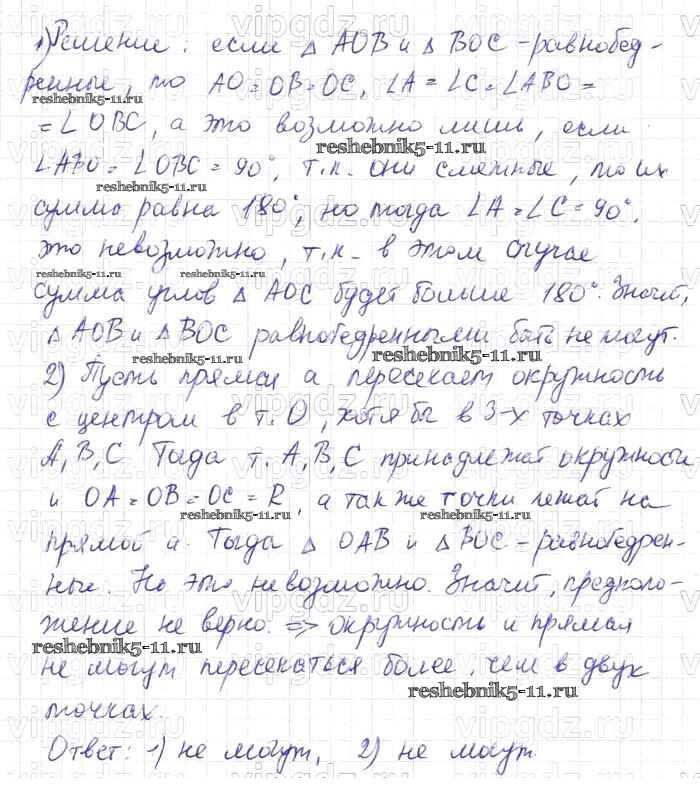 1) Решение: если △ AOB и △ BOC - равнобед-
ренные, то AO = OB = OC, ∠A = ∠C = ∠ABO =
reshebnik5-11.ru
= ∠OBC, а это возможно лишь, если
reshebnik5-11.ru
∠ABO = ∠OBC = 90°, т.к. они смежные, то их
reshebnik5-11.ru
сумма равна 180°, но тогда ∠A = ∠C = 90°,
это невозможно, т.к. в этом случае
reshebnik5-11.ru reshebnik5-11.ru
сумма углов △ AOC будет больше 180°. Значит,
△ AOB и △ BOC равнобедренными быть не могут.
reshebnik5-11.ru reshebnik5-11.ru
2) Пусть прямая a пересекает окружность
с центром в т. O, хотя бы в 3-х точках
A, B, C. Тогда т. A, B, C принадлежат окружности
и OA = OB = OC = R, а также точки лежат на
reshebnik5-11.ru reshebnik5-11.ru
прямой a. Тогда △ OAB и △ BOC - равнобедрен-
ные. Но это невозможно. Значит, предполо-
жение не верно. => окружность и прямая
reshebnik5-11.ru
не могут пересекаться более, чем в двух
reshebnik5-11.ru
точках.
Ответ: 1) не могут, 2) не могут.